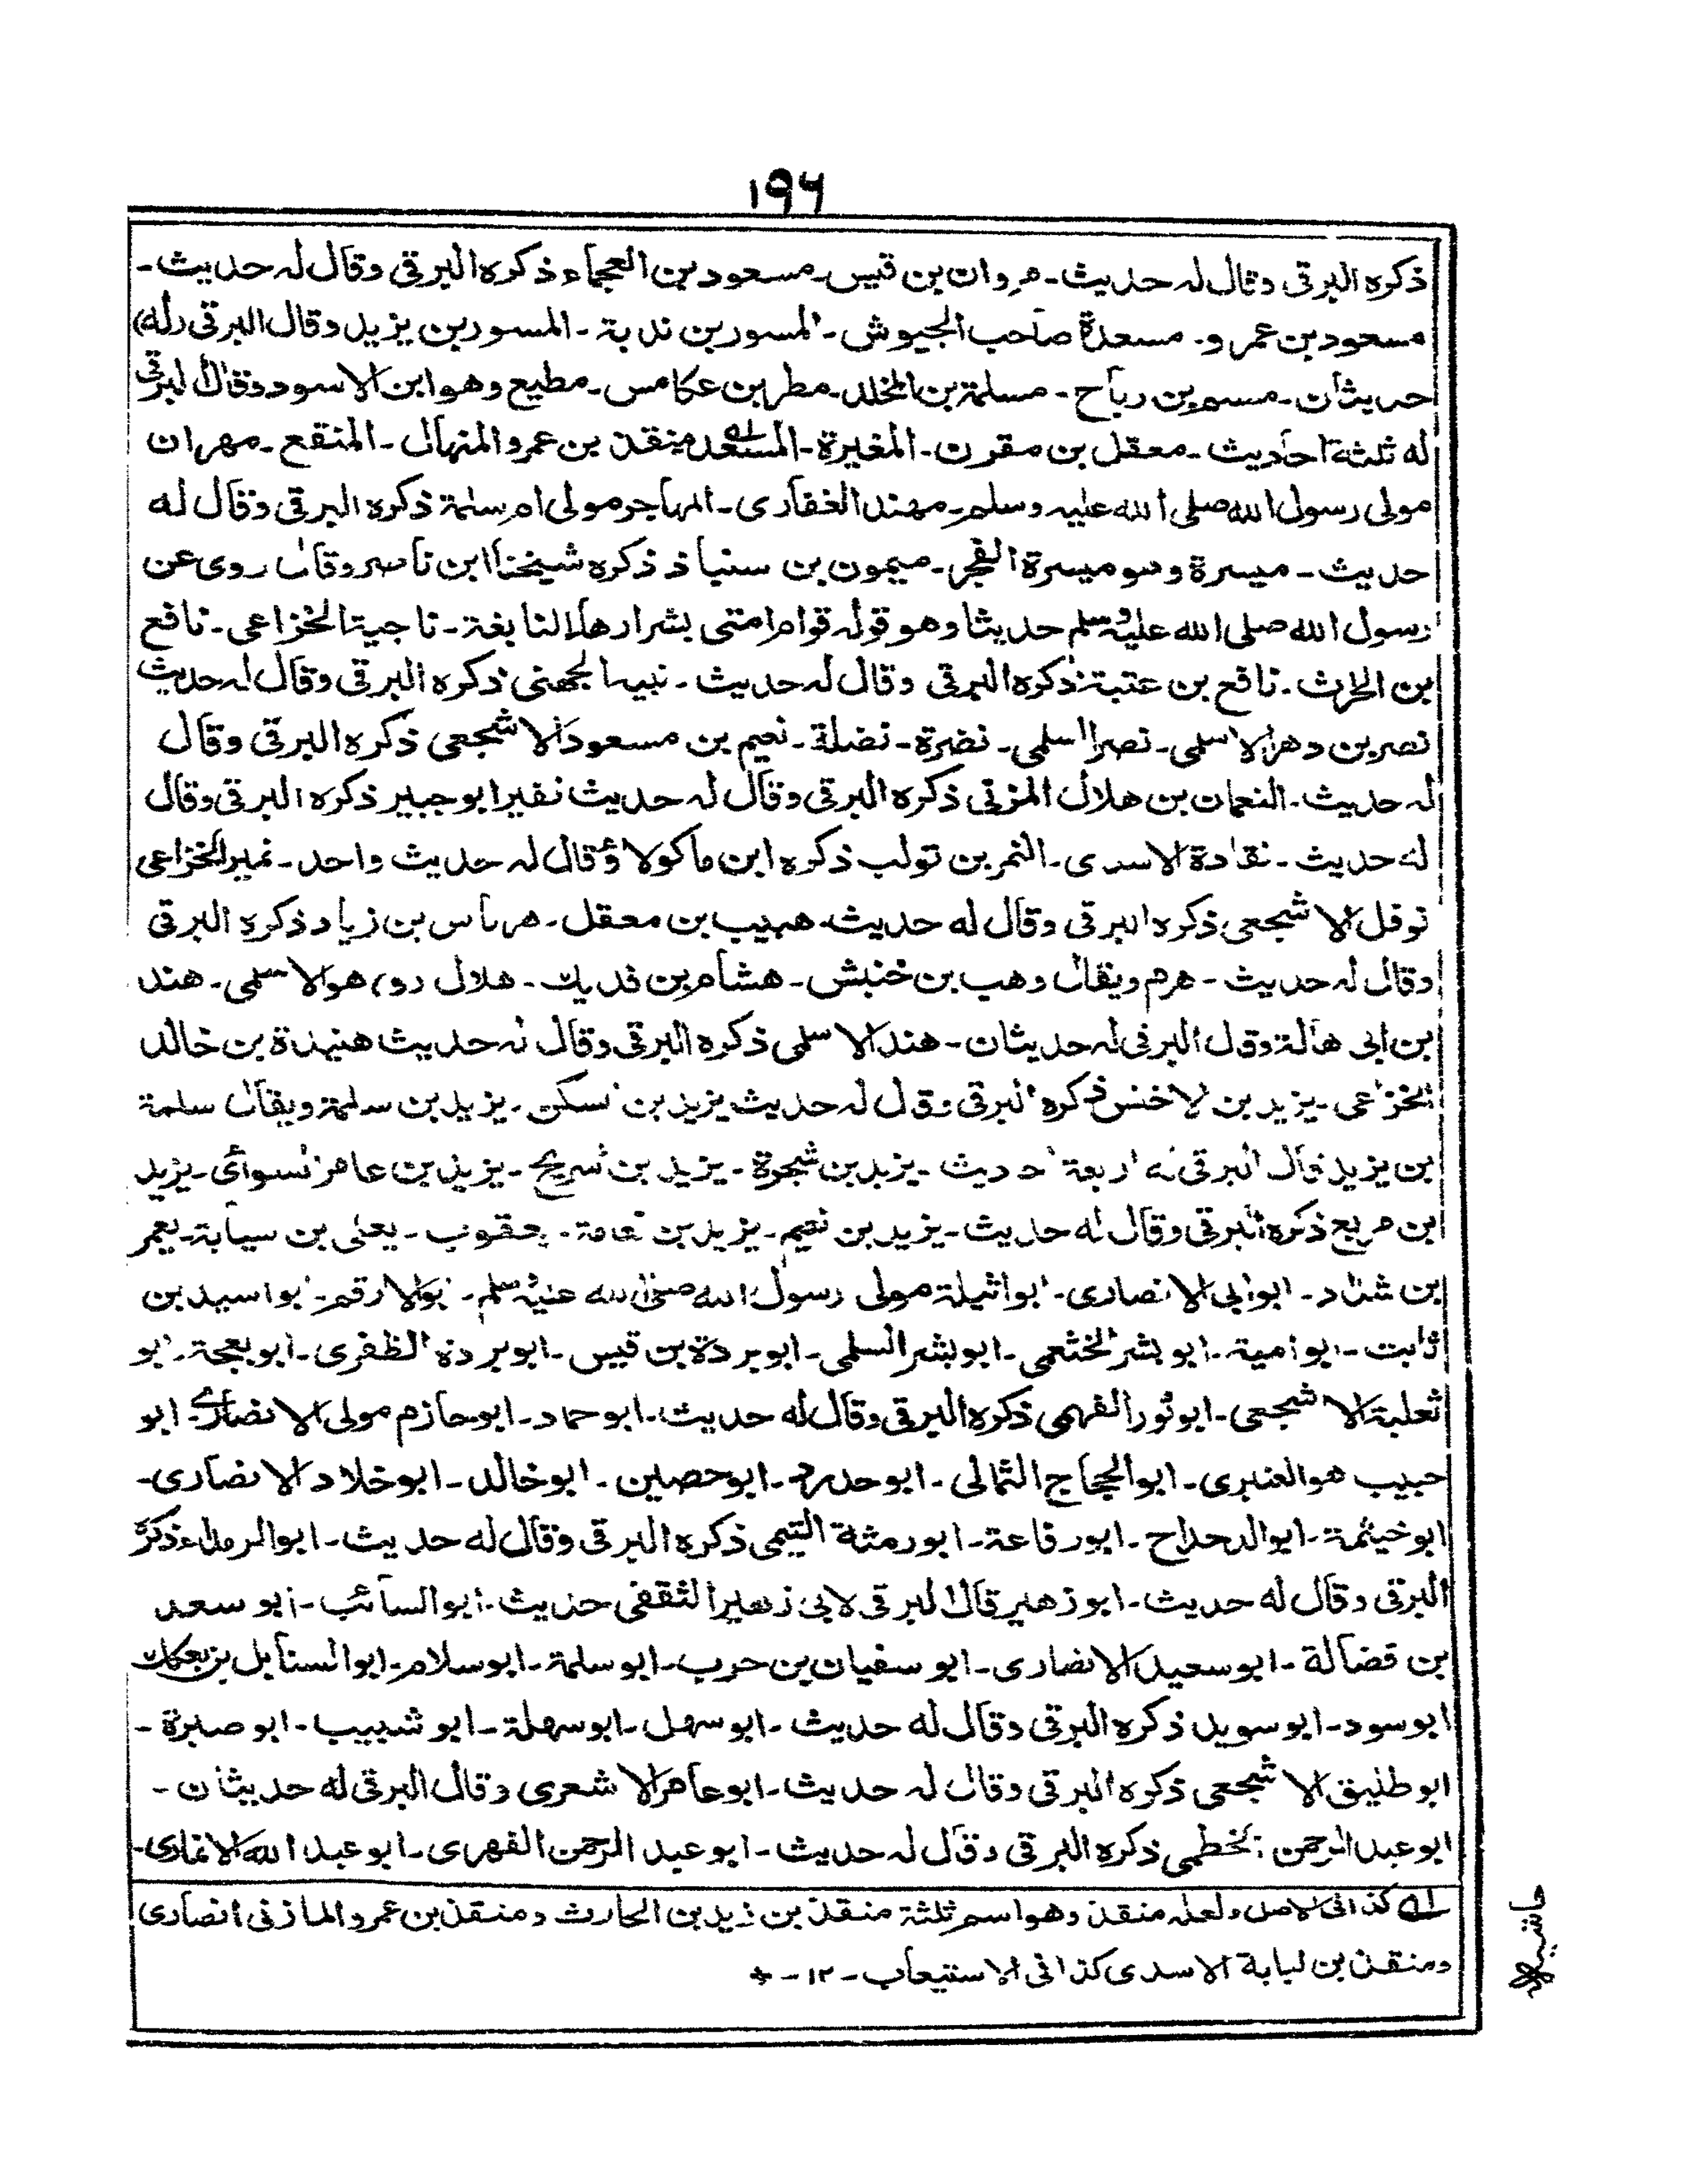 ١٩٦
ذكره البرقي وقال له حديث ـ مروان بن قيس ـ مسعود بن العجماء ذكره البرقي وقال له حديث ـ
مسعود بن عمرو ـ مسعدة صاحب الجيوش ـ المسور بن ندبة ـ المسور بن يزيد وقال البرقي (له)
حديثان ـ مسم بن رباح ـ مسلمة بن المخلد ـ مطر بن عكامس ـ مطيع وهو ابن الاسود وقال البرقي
له ثلثة احاديث ـ معقل بن مقرن ـ المغيرة ـ المستعد منقذ بن عمرو المنهال ـ المنقع ـ مهران
مولى رسول الله صلى الله عليه وسلم ـ مهند الغفاري ـ المهاجر مولى ام سلمة ذكره البرقي وقال له
حديث ـ ميسرة وهو ميسرة الفجر ـ ميمون بن سنباذ ذكره شيخنا ابن ناصر وقال روى عن
رسول الله صلى الله عليه وسلم حديثا وهو قوله قوام امتي بشرارها النابغة ـ ناجية الخزاعي ـ نافع
بن الحارث ـ نافع بن عتبة ذكره البرقي وقال له حديث ـ نبيه الجهني ذكره البرقي وقال له حديث
نصر بن دهر الاسلمي ـ نصر السلمي ـ نضرة ـ نضلة ـ نعيم بن مسعود الاشجعي ذكره البرقي وقال
له حديث ـ النعمان بن هلال المزني ذكره البرقي وقال له حديث نفير ابو جبير ذكره البرقي وقال
له حديث ـ نقادة الاسدي ـ النمر بن تولب ذكره ابن ماكولا وقال له حديث واحد ـ نمير الخزاعي
نوفل الاشجعي ذكره البرقي وقال له حديث ـ هبيب بن معقل ـ هرماس بن زياد ذكره البرقي
وقال له حديث ـ هرم ويقال وهب بن خنبش ـ هشام بن فديك ـ هلال (و) هو الاسلمي ـ هند
بن ابي هالة وقال البرقي له حديثان ـ هند الاسلمي ذكره البرقي وقال له حديث هنيدة بن خالد
الخزاعي ـ يزيد بن الاخنس ذكره البرقي وقال له حديث يزيد بن السكن ـ يزيد بن سلمة ويقال سلمة
بن يزيد قال البرقي له اربعة احاديث ـ يزيد بن شجرة ـ يزيد بن شريح ـ يزيد بن عامر السوائي ـ يزيد
ابن مربع ذكره البرقي وقال له حديث ـ يزيد بن نعيم ـ يزيد بن نعامة ـ يعقوب ـ يعلى بن سيابة ـ يعمر
بن شداد ـ ابو ابي الانصاري ـ ابو اثيلة مولى رسول الله صلى الله عليه وسلم ـ ابو الارقم ـ ابو اسيد بن
ثابت ـ ابو امية ـ ابو بشر الخثعمي ـ ابو بشر السلمي ـ ابو بردة بن قيس ـ ابو بردة الظفري ـ ابو بعجة ـ ابو
ثعلبة الاشجعي ـ ابو ثور الفهمي ذكره البرقي وقال له حديث ـ ابو حماد ـ ابو حازم مولى الانصاري ـ ابو
حبيب هو العنبري ـ ابو الحجاج الثمالي ـ ابو حدرد ـ ابو حصين ـ ابو خالد ـ ابو خلاد الانصاري ـ
ابو خيثمة ـ ابو الدحداح ـ ابو رفاعة ـ ابو رمثة التيمي ذكره البرقي وقال له حديث ـ ابو الرمداء ذكره
البرقي وقال له حديث ـ ابو زهير قال البرقي لابي زهير الثقفي حديث ـ ابو السائب ـ ابو سعد
بن فضالة ـ ابو سعيد الانصاري ـ ابو سفيان بن حرب ـ ابو سلمة ـ ابو سلام ـ ابو السنابل بن بعكك
ابو سود ـ ابو سويد ذكره البرقي وقال له حديث ـ ابو سهل ـ ابو سهلة ـ ابو شبيب ـ ابو صبرة ـ
ابو طليق الاشجعي ذكره البرقي وقال له حديث ـ ابو عامر الاشعري وقال البرقي له حديثان ـ
ابو عبد الرحمن الخطمي ذكره البرقي وقال له حديث ـ ابو عبد الرحمن الفهري ـ ابو عبد الله الانماري ـ
له كذا في الاصل ولعله منقذ وهو اسم ثلثة منقذ بن زيد بن الحارث ومنقذ بن عمرو المازني انصاري
ومنقذ بن لبابة الاسدي كذا في الاستيعاب ـ ١٢ ـ *
حاشيه